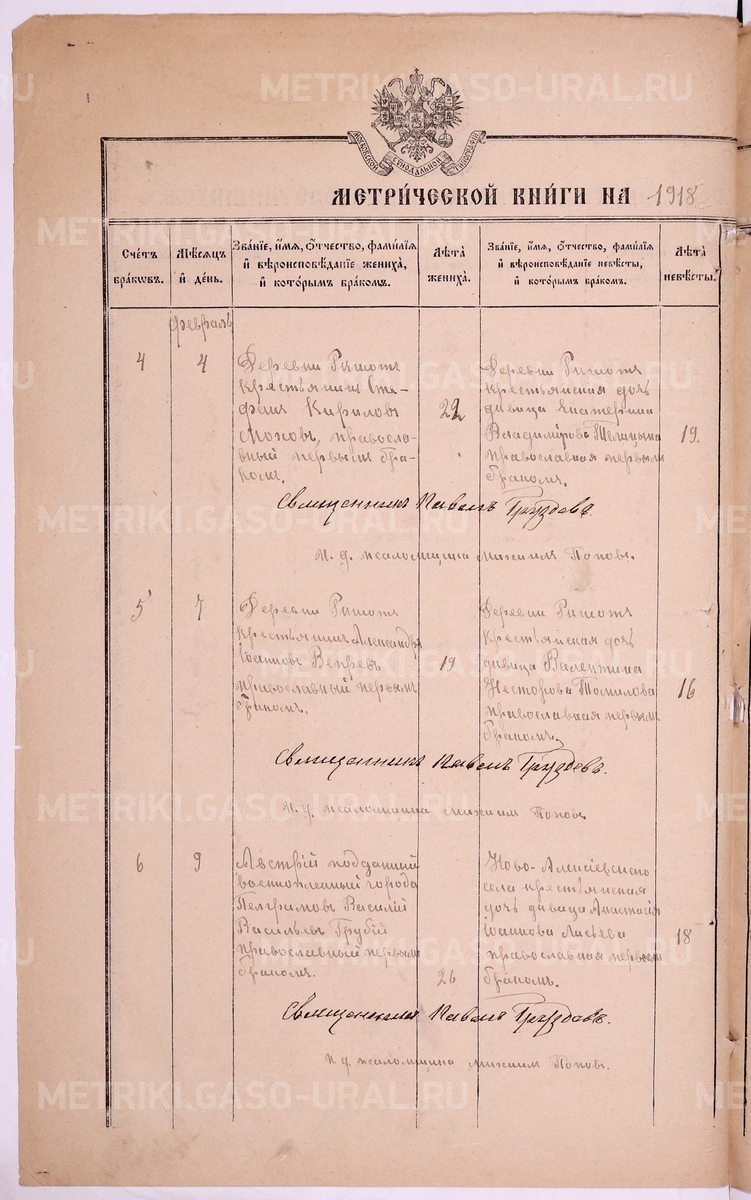 METRIKI.GASO-URAL.RU
МОСКОВСКОЙ СѴНОДАЛЬНОЙ ТИПОГРАФІИ
МЕТРИ́ЧЕСКОЙ КНИ́ГИ НА 1918
Сче́тъ бра́кѡвъ.
Мѣ́сяцъ и҆ де́нь.
Зва́нїе, и҆́мя, ѻ҆́тчество, фамѝлїя и҆ вѣроисповѣ́данїе жениха̀, и҆ кото́рымъ бра́комъ.
Лѣ́та жениха̀.
Зва́нїе, и҆́мя, ѻ҆́тчество, фамѝлїя и҆ вѣроисповѣ́данїе невѣ́сты, и҆ кото́рымъ бра́комъ.
Лѣ́та невѣ́сты.
февраль
4
4
Деревни
крестьянин Сте-
фан Кирилов
православ-
ный первым бра-
ком.
22
Деревни
крестьянская дочь
девица Екатерина
Владимірова
православная первым
браком.
19.
Священникъ Павелъ Груздевъ.
И. д. псаломщика Михаил Попов.
5
7
Деревни
крестьянин Александръ
Іоаннов Вепрев
православный первым
браком.
19
Деревни
крестьянская дочь
девица Валентина
Несторова Томилова
православная первым
браком.
16
Священникъ Павелъ Груздевъ.
И. д. псаломщика Михаил Попов.
6
9
Австрій подданный
военнопленный города
Василій
Васильев Грубій
православный первым
браком.
26
Ново-Алексіевского
села крестьянская
дочь девица Анастасія
Іоаннова
православная первым
браком.
18
Священникъ Павелъ Груздевъ.
И. д. псаломщика Михаил Попов.